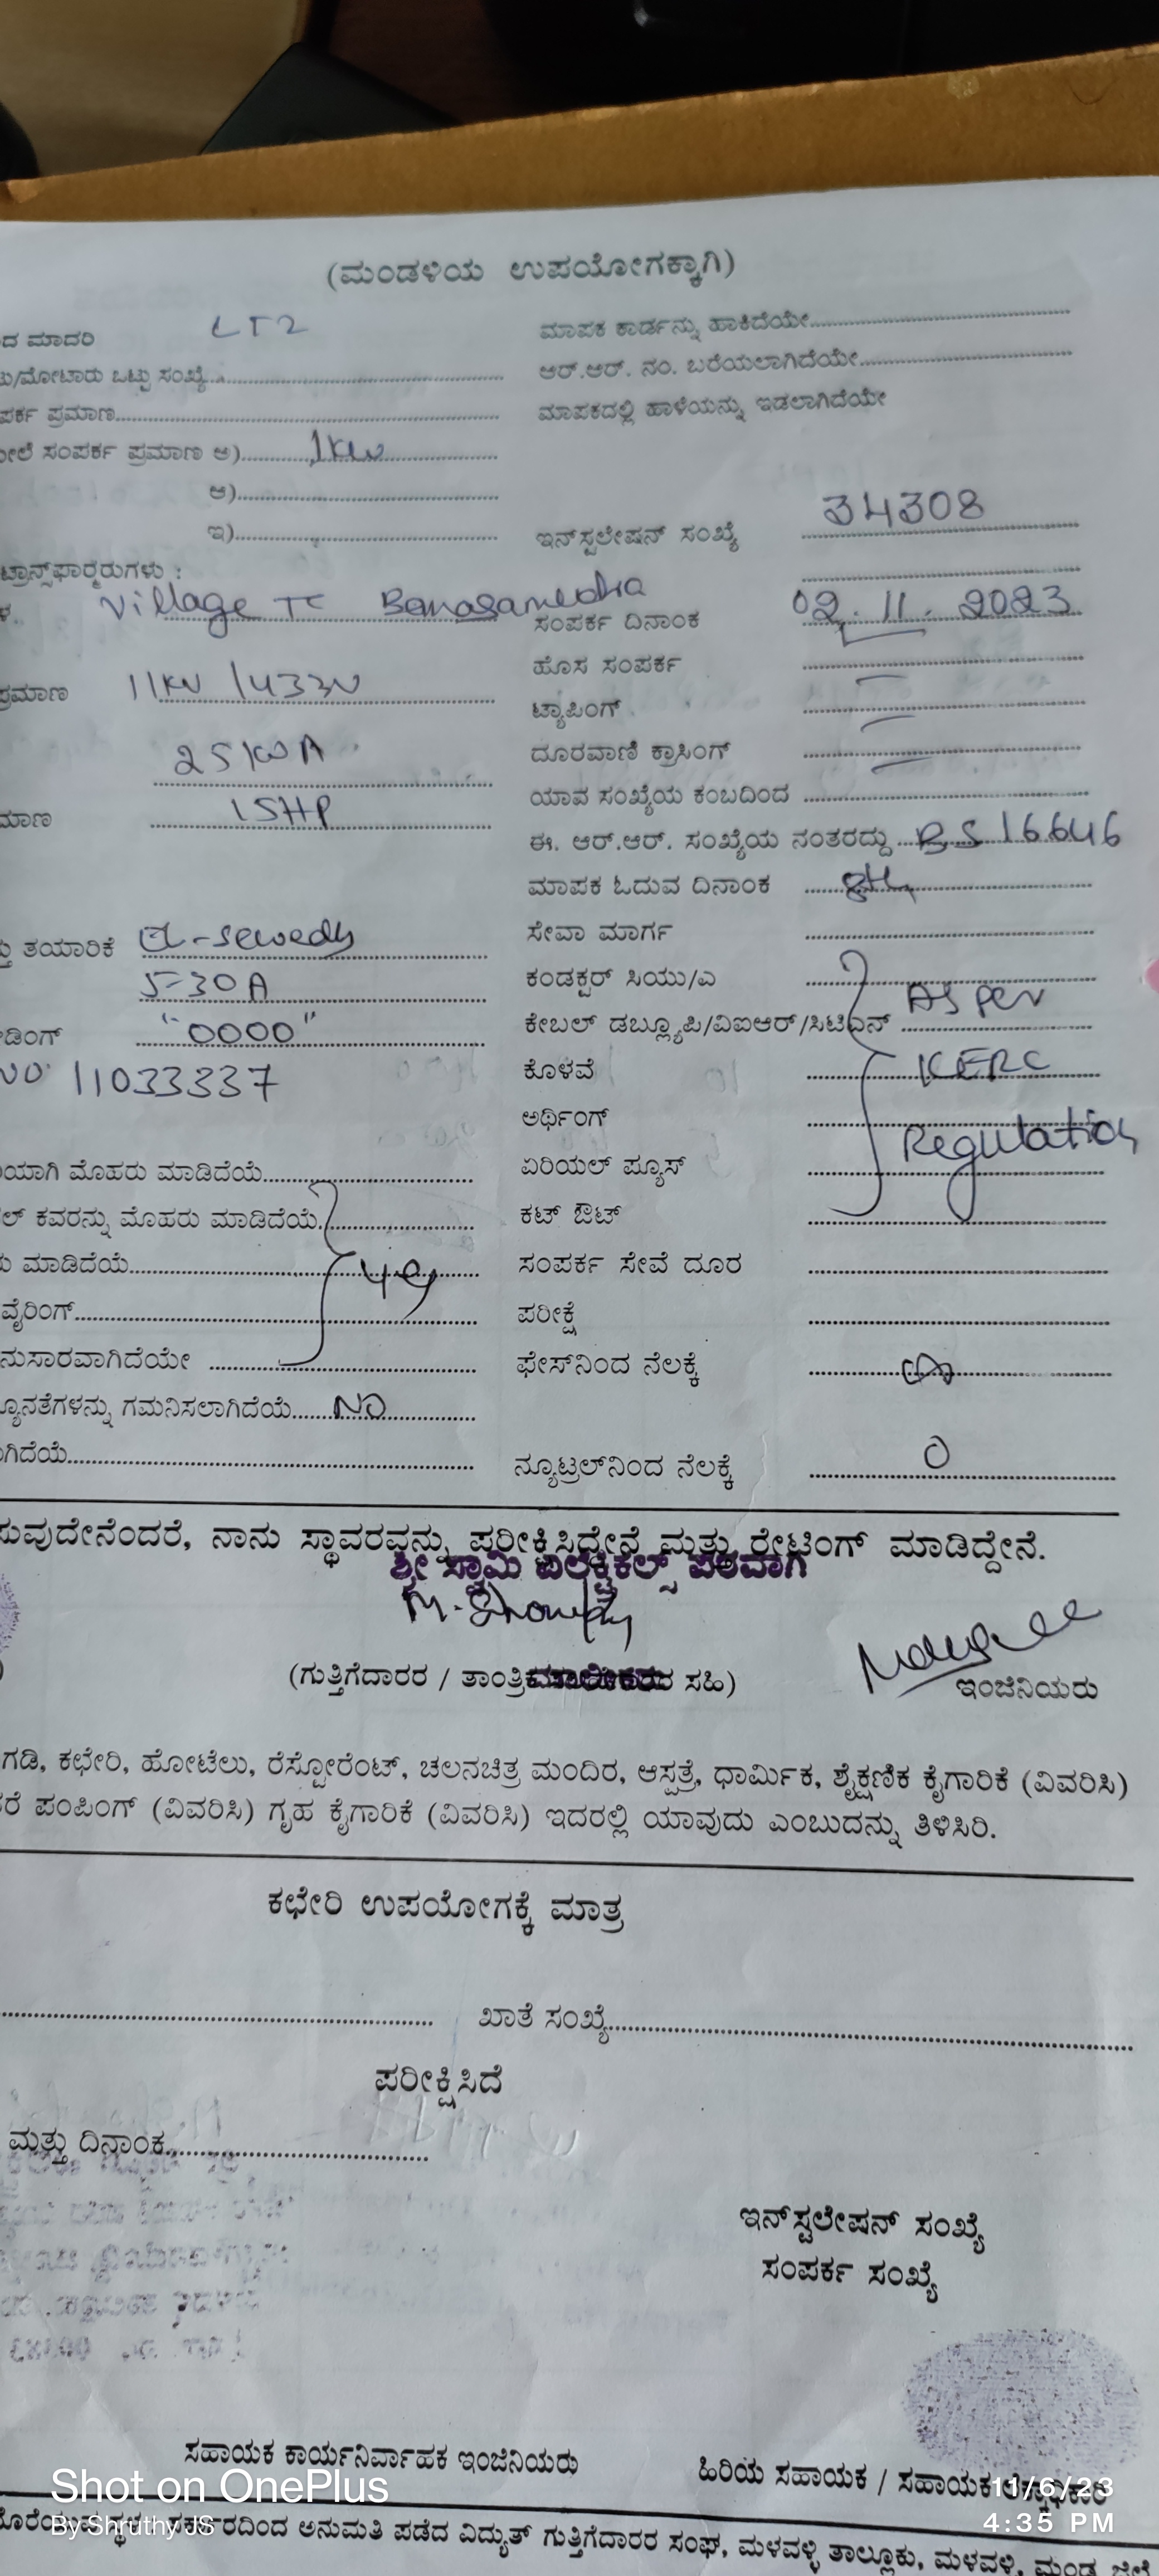 (ಮಂಡಳಿಯ ಉಪಯೋಗಕ್ಕಾಗಿ)
ದ ಮಾದರಿ LT2 ಮಾಪಕ ಕಾರ್ಡನ್ನು ಹಾಕಿದೆಯೇ
ಟು/ಮೋಟಾರು ಒಟ್ಟು ಸಂಖ್ಯೆ ಆರ್.ಆರ್. ನಂ. ಬರೆಯಲಾಗಿದೆಯೇ
ಪರ್ಕ ಪ್ರಮಾಣ ಮಾಪಕದಲ್ಲಿ ಹಾಳೆಯನ್ನು ಇಡಲಾಗಿದೆಯೇ
ಲೆ ಸಂಪರ್ಕ ಪ್ರಮಾಣ ಅ) 1KW
ಆ)
ಇ) ಇನ್‌ಸ್ಟಲೇಷನ್ ಸಂಖ್ಯೆ 34308
ಟ್ರಾನ್ಸ್‌ಫಾರ್ಮರುಗಳು :
Village TC ಸಂಪರ್ಕ ದಿನಾಂಕ 02.11.2023
ಹೊಸ ಸಂಪರ್ಕ
ಪ್ರಮಾಣ 11KV/433V ಟ್ಯಾಪಿಂಗ್
25KVA ದೂರವಾಣಿ ಕ್ರಾಸಿಂಗ್
ಮಾಣ 15HP ಯಾವ ಸಂಖ್ಯೆಯ ಕಂಬದಿಂದ
ಈ. ಆರ್.ಆರ್. ಸಂಖ್ಯೆಯ ನಂತರದ್ದು BS16646
ಮಾಪಕ ಓದುವ ದಿನಾಂಕ 8th
ತು ತಯಾರಿಕೆ El-sewedy ಸೇವಾ ಮಾರ್ಗ
5-30A ಕಂಡಕ್ಟರ್ ಸಿಯು/ಎ As per
ಡಿಂಗ್ "0000" ಕೇಬಲ್ ಡಬ್ಲ್ಯೂಪಿ/ವಿಐಆರ್/ಸಿಟಿಎನ್
NO 11033337 ಕೊಳವೆ KERC
ಅರ್ಥಿಂಗ್ Regulation
ಯಾಗಿ ಮೊಹರು ಮಾಡಿದೆಯೆ ಏರಿಯಲ್ ಪ್ಯೂಸ್
ಲ್ ಕವರನ್ನು ಮೊಹರು ಮಾಡಿದೆಯೆ ಕಟ್ ಔಟ್
ಮಾಡಿದೆಯೆ ಸಂಪರ್ಕ ಸೇವೆ ದೂರ
ವೈರಿಂಗ್ ಪರೀಕ್ಷೆ
ನುಸಾರವಾಗಿದೆಯೇ ಫೇಸ್‌ನಿಂದ ನೆಲಕ್ಕೆ
ಯೂನತೆಗಳನ್ನು ಗಮನಿಸಲಾಗಿದೆಯೆ NO
ಗಿದೆಯೆ ನ್ಯೂಟ್ರಲ್‌ನಿಂದ ನೆಲಕ್ಕೆ 0
ಸುವುದೇನೆಂದರೆ, ನಾನು ಸ್ಥಾವರವನ್ನು ಪರೀಕ್ಷಿಸಿದ್ದೇನೆ ಮತ್ತು ರೇಟಿಂಗ್ ಮಾಡಿದ್ದೇನೆ.
ಶ್ರೀ ಸ್ವಾಮಿ ಎಲೆಕ್ಟ್ರಿಕಲ್ಸ್ ಪರವಾಗಿ
(ಗುತ್ತಿಗೆದಾರರ / ತಾಂತ್ರಿಕ ಸಹಿ) ಇಂಜಿನಿಯರು
ಗಡಿ, ಕಛೇರಿ, ಹೋಟೆಲು, ರೆಸ್ಟೋರೆಂಟ್, ಚಲನಚಿತ್ರ ಮಂದಿರ, ಆಸ್ಪತ್ರೆ, ಧಾರ್ಮಿಕ, ಶೈಕ್ಷಣಿಕ ಕೈಗಾರಿಕೆ (ವಿವರಿಸಿ)
ರೆ ಪಂಪಿಂಗ್ (ವಿವರಿಸಿ) ಗೃಹ ಕೈಗಾರಿಕೆ (ವಿವರಿಸಿ) ಇದರಲ್ಲಿ ಯಾವುದು ಎಂಬುದನ್ನು ತಿಳಿಸಿರಿ.
ಕಛೇರಿ ಉಪಯೋಗಕ್ಕೆ ಮಾತ್ರ
ಖಾತೆ ಸಂಖ್ಯೆ
ಪರೀಕ್ಷಿಸಿದೆ
ಮತ್ತು ದಿನಾಂಕ
ಇನ್‌ಸ್ಟಲೇಷನ್ ಸಂಖ್ಯೆ
ಸಂಪರ್ಕ ಸಂಖ್ಯೆ
ಸಹಾಯಕ ಕಾರ್ಯನಿರ್ವಾಹಕ ಇಂಜಿನಿಯರು ಹಿರಿಯ ಸಹಾಯಕ / ಸಹಾಯಕ
Shot on OnePlus 11/6/23
By Shruthy JS 4:35 PM
ರ್ಕಾರದಿಂದ ಅನುಮತಿ ಪಡೆದ ವಿದ್ಯುತ್ ಗುತ್ತಿಗೆದಾರರ ಸಂಘ, ಮಳವಳ್ಳಿ ತಾಲ್ಲೂಕು, ಮಳವಳ್ಳಿ, ಮಂಡ್ಯ ಜಿಲ್ಲೆ